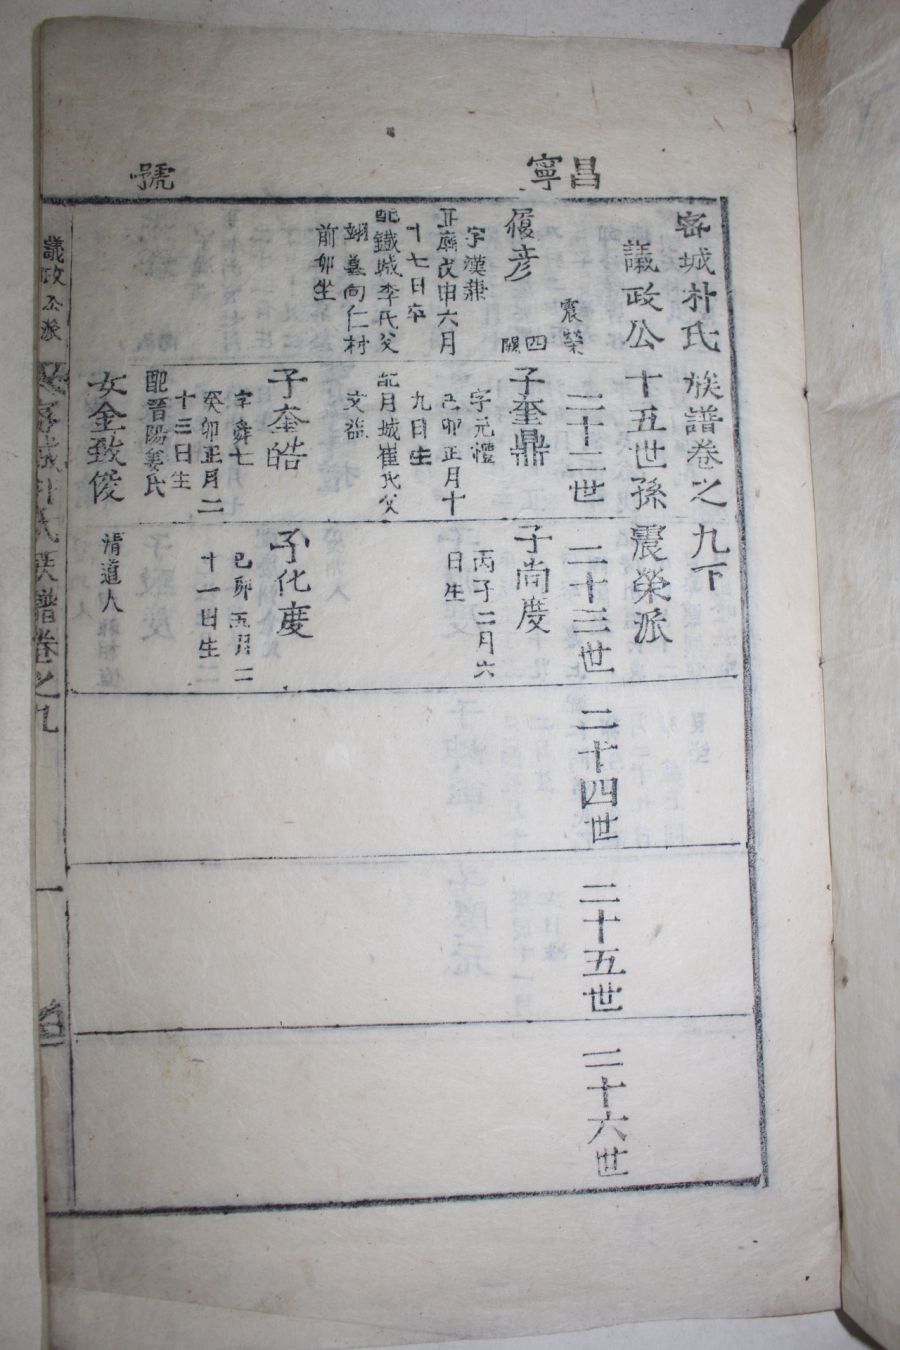 昌寧
號
密城朴氏族譜卷之九下
議政公十五世孫震榮派
震榮
四
二十二世
二十三世
二十四世
二十五世
二十六世
履彦
字漢鼎
正廟戊申六月
十七日卒
配鐵城李氏父
翊墓向仁村
前卯坐
子奎鼎
字元禮
己卯正月十
九日生
配月城崔氏父
文
子奎皓
字舜七
癸卯正月二
十三日生
配晉陽姜氏
女金致俊
清道人
子尚度
丙子二月六
日生
子化度
己卯五月二
十一日生
議政公派
密城朴氏族譜卷之九
一